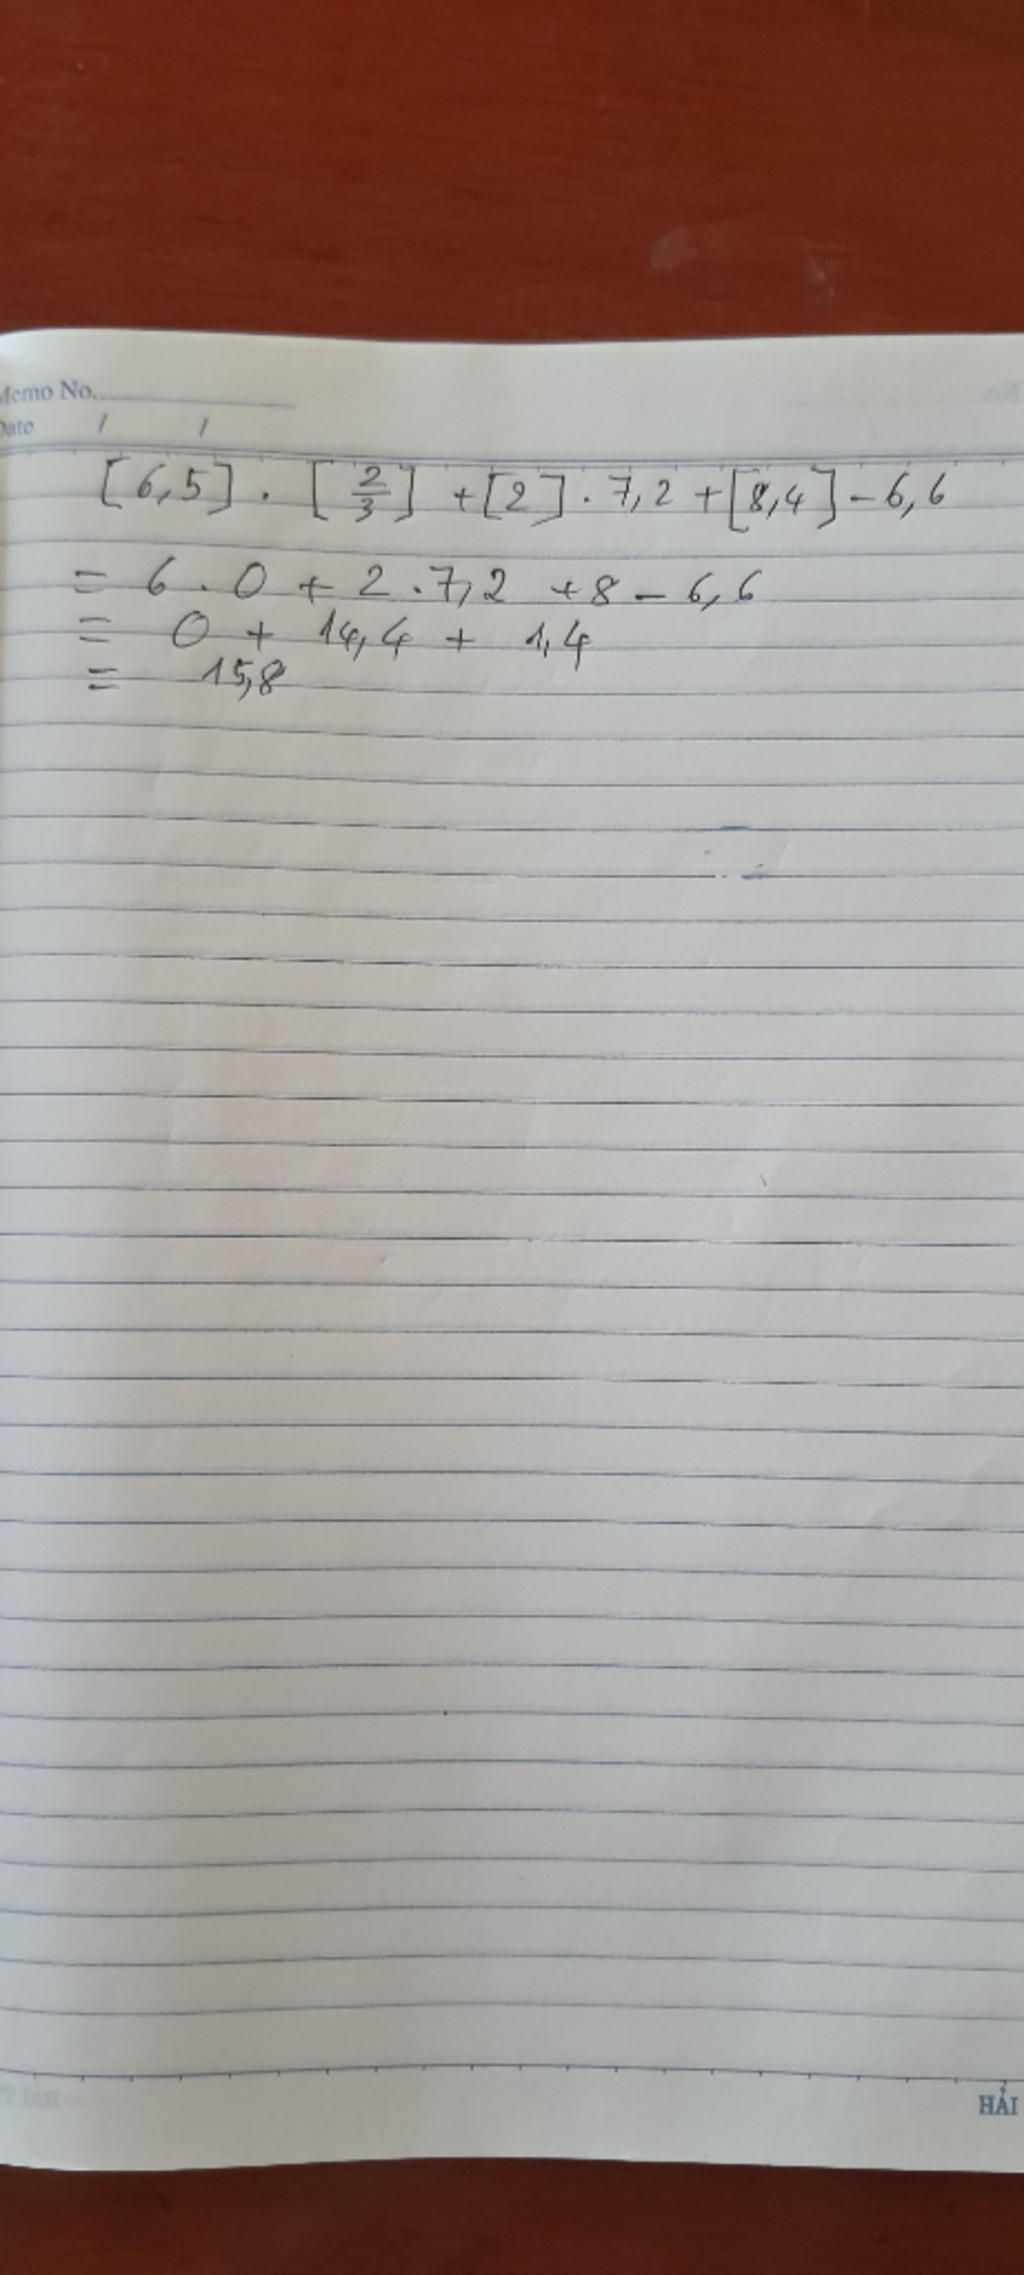 Memo No.
Date / /
[6,5] . [2/3] + [2] . 7,2 + [8,4] - 6,6
= 6 . 0 + 2 . 7,2 + 8 - 6,6
= 0 + 14,4 + 1,4
= 15,8
HẢI